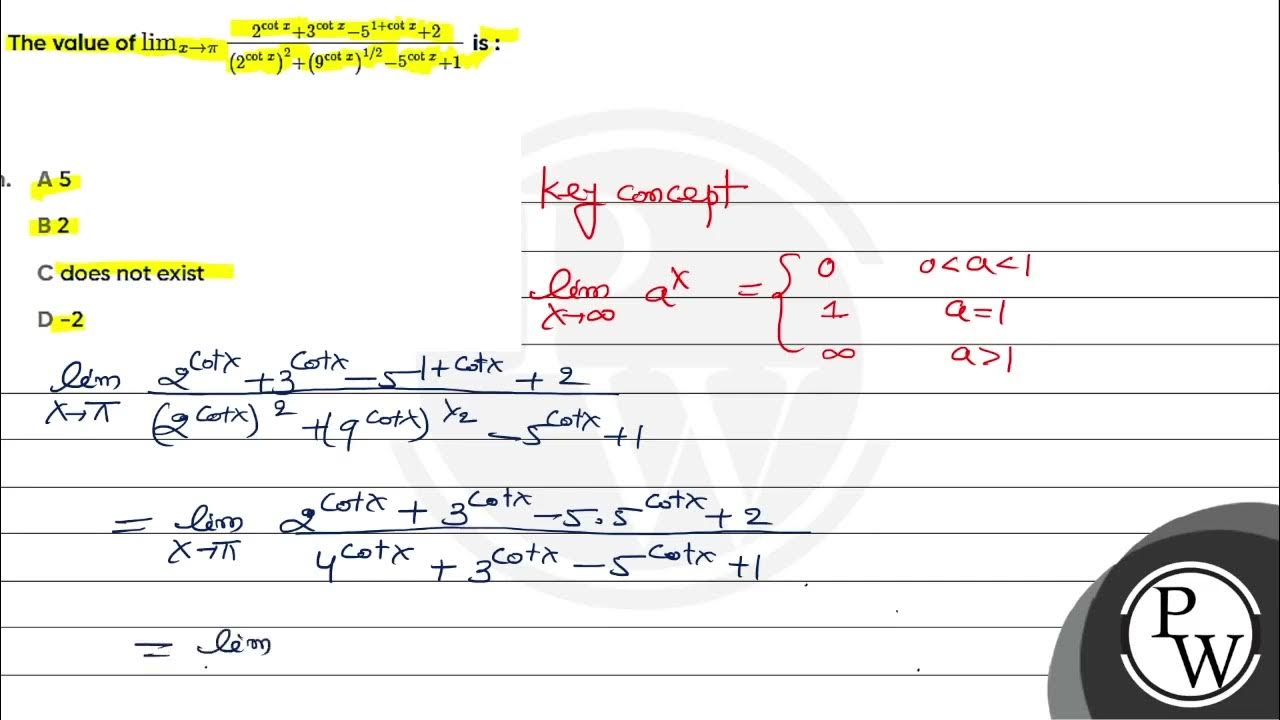 The value of lim x→π (2^cot x + 3^cot x − 5^(1+cot x) + 2) / ((2^cot x)^2 + (9^cot x)^(1/2) − 5^cot x + 1) is :
n. A 5
B 2
C does not exist
D -2
Key concept
lim x→∞ a^x = { 0 0<a<1
1 a=1
∞ a>1
lim x→π (2^cotx + 3^cotx − 5^(1+cotx) + 2) / ((2^cotx)^2 + (9^cotx)^(1/2) − 5^cotx + 1)
= lim x→π (2^cotx + 3^cotx − 5·5^cotx + 2) / (4^cotx + 3^cotx − 5^cotx + 1)
= lim
P
W